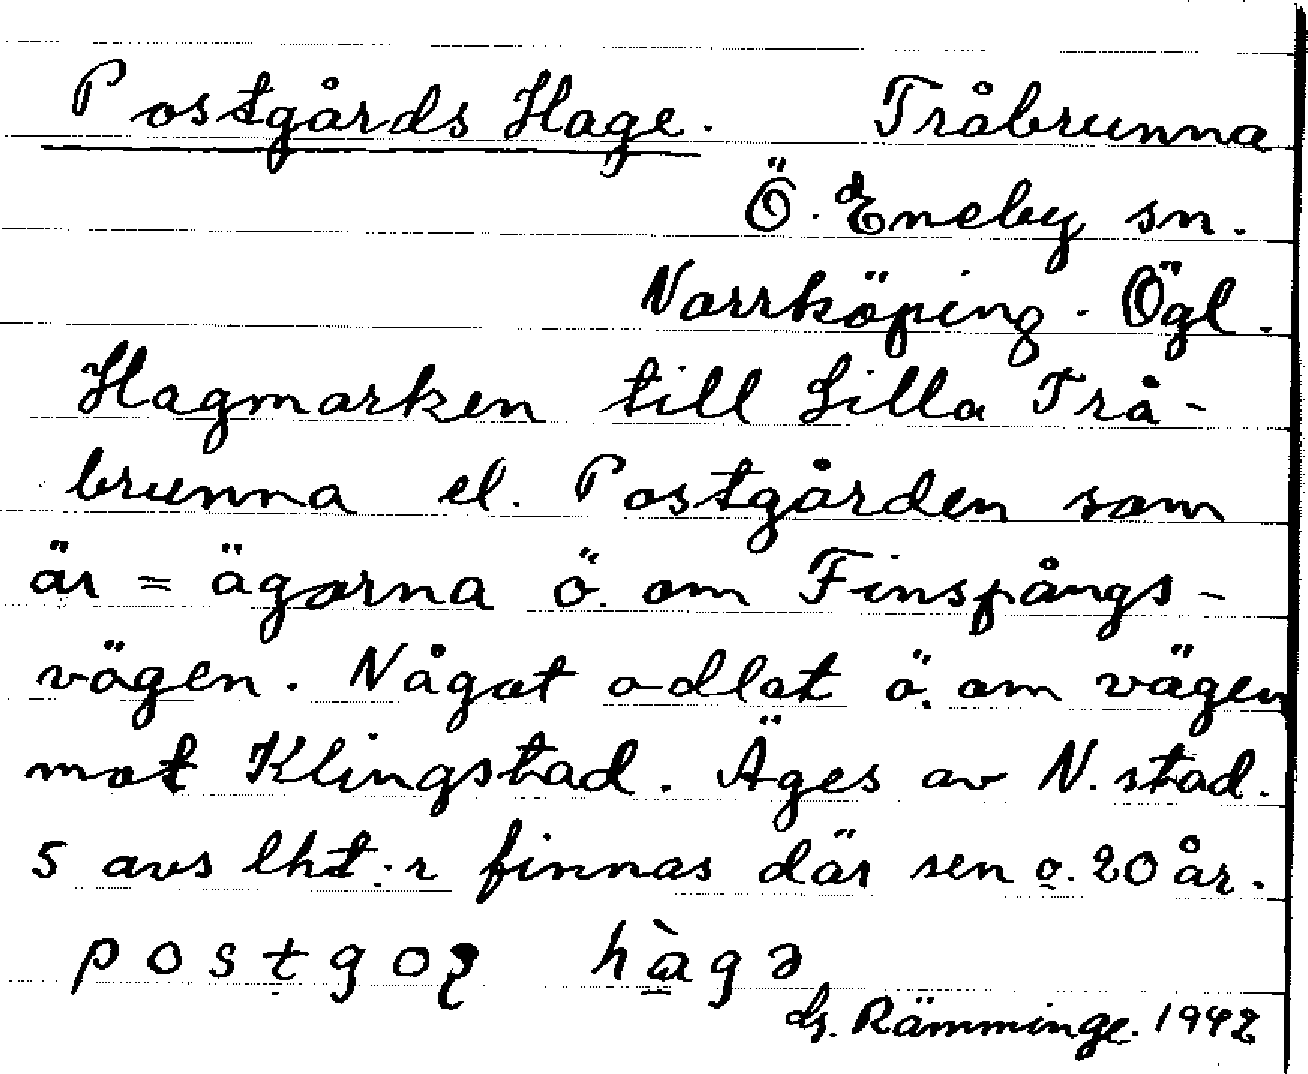 Postgårds Hage. Tråbrunna
Ö. Eneby sn.
Norrköping. Ögl.
Hagmarken till Lilla Trå-
brunna el. Postgården som
är = ägorna ö. om Finspångs-
vägen. Något odlat ö. om vägen
mot Klingstad. Äges av N. stad.
5 avs lht:r finnas där sen o. 20 år.
postgoʂ hàgə
G. Rämminge. 1942